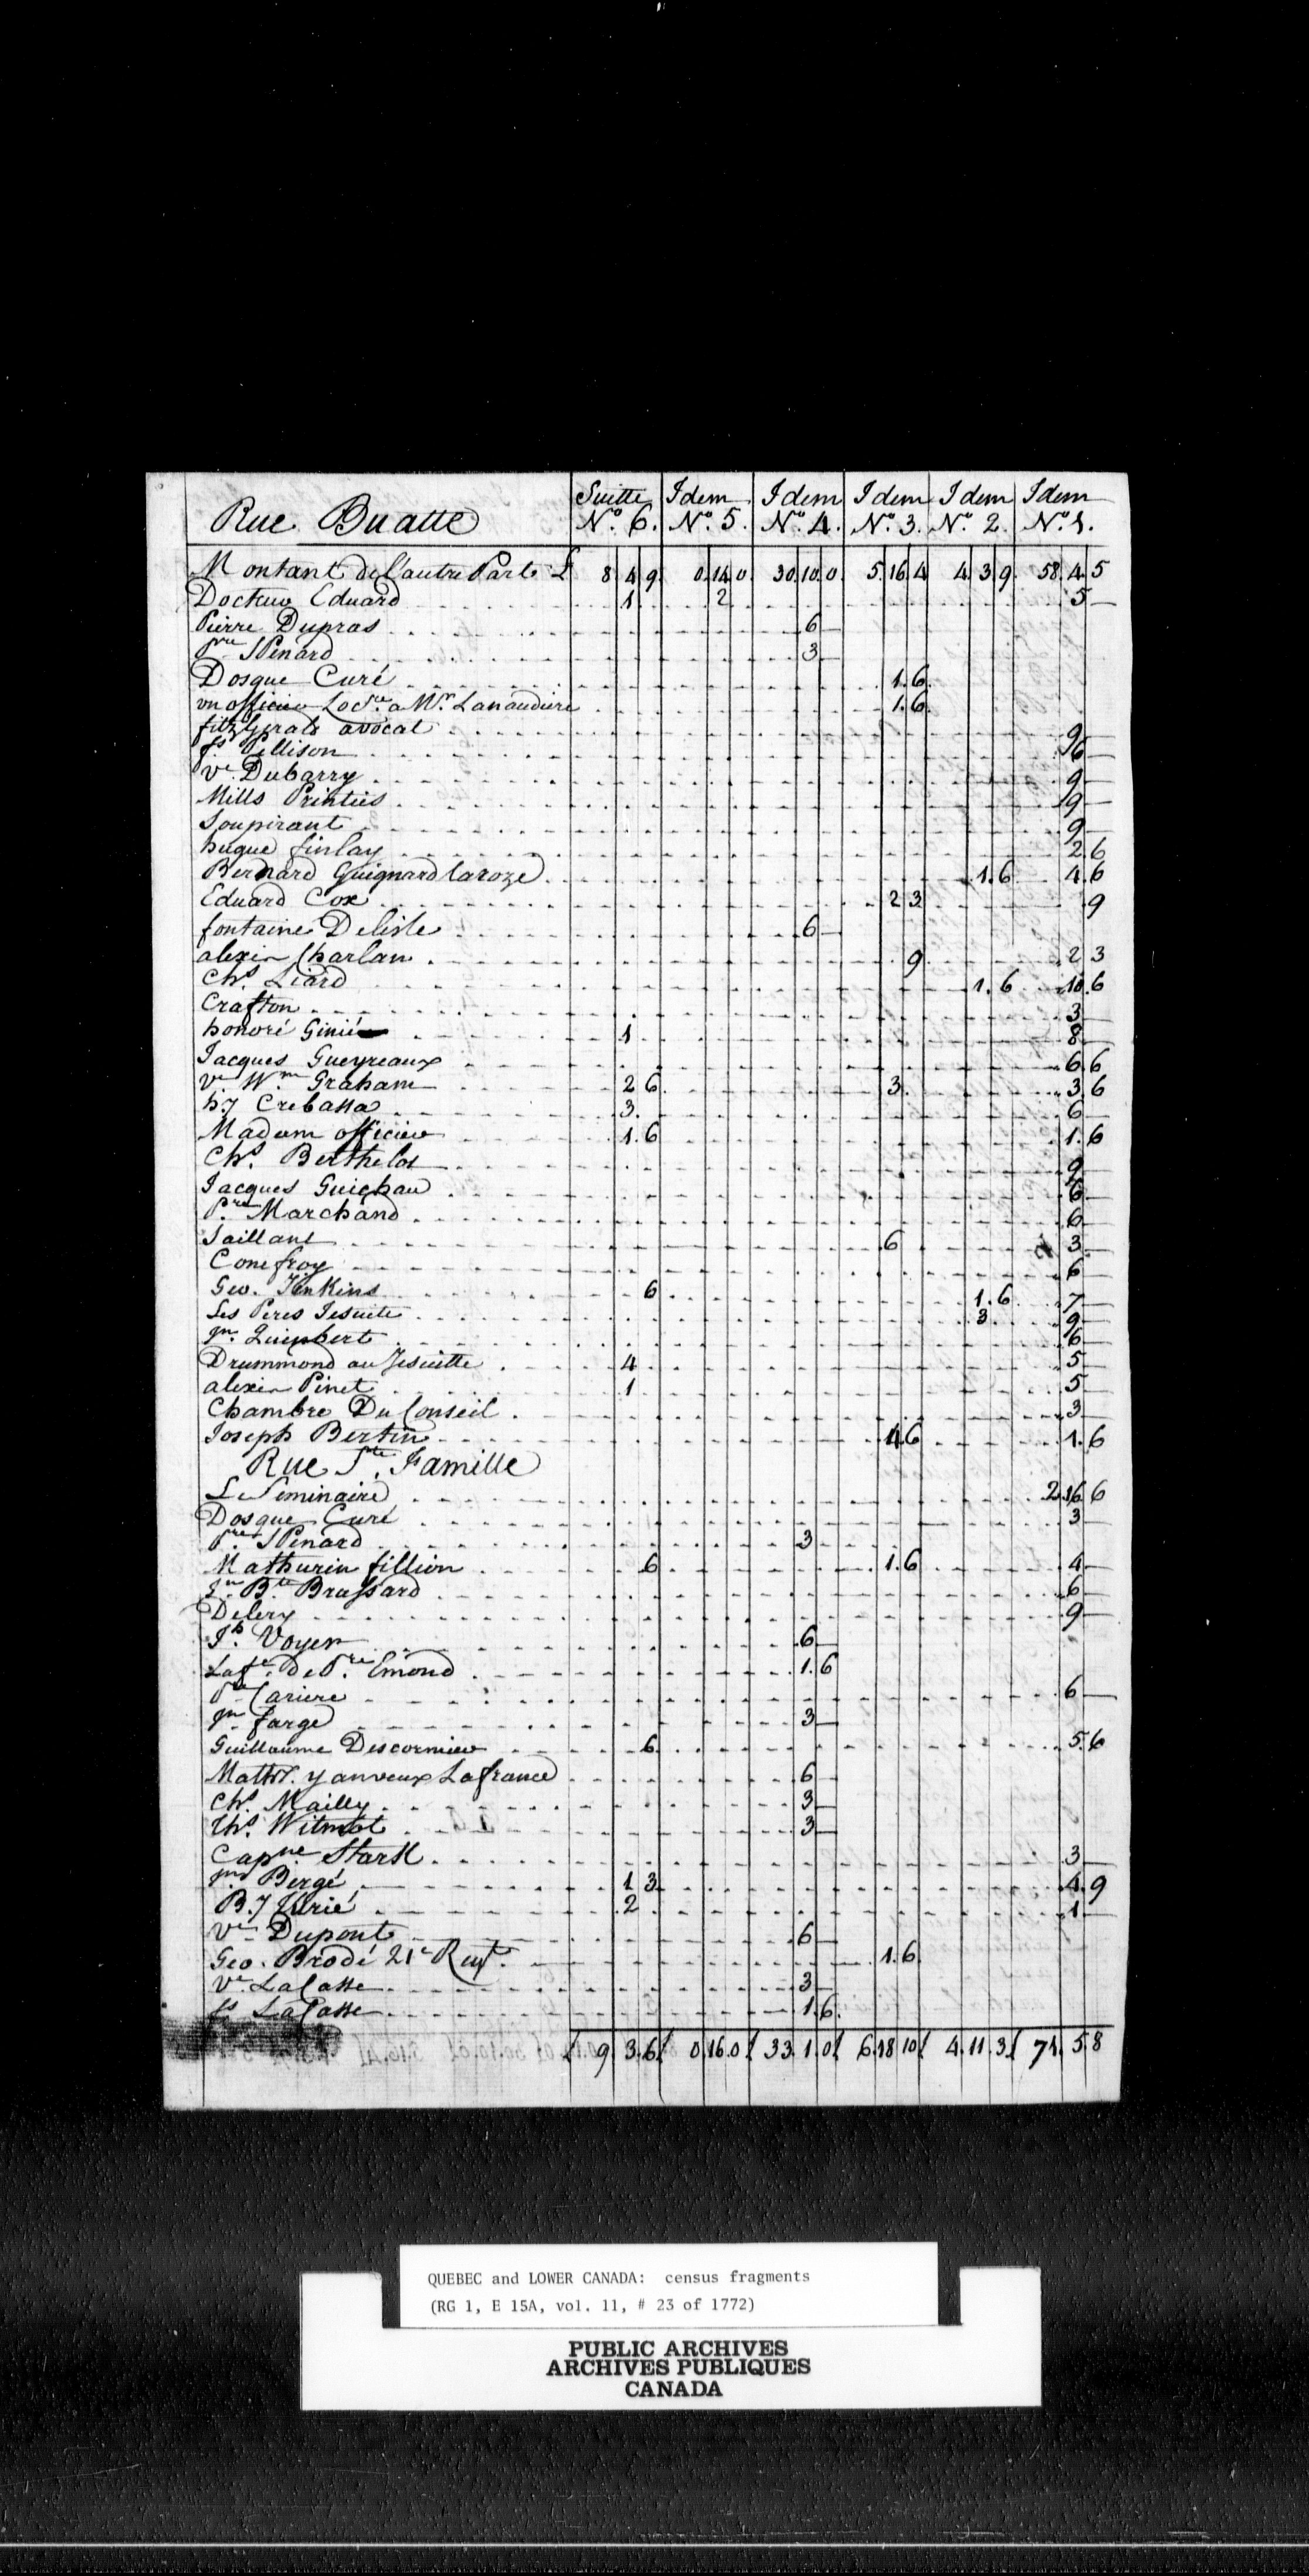 Rue Buatte Suitte No. 6. Idem No. 5. Idem No. 4. Idem No. 3. Idem No. 2. Idem No. 1.
Montant de l'autre Part £ 8 4 9 0 14 0 30 10 0 5 16 4 4 3 9 58 4 5
Docteur Eduard 1 2 5
Pierre Dupras 6
Pre Spenard 3
Dosque Curé 1. 6
un officier Locre a Mr. Lanaudiere 1. 6
fitzGerald avocat 9
fs. Pellison 6
Ve. Dubarry 9
Mills Printies 9
Soupirant 9
hugue finlay 2 6
Bernard Guignard laroze 1. 6 4 6
Eduard Cox 2 3 9
fontaine Delisle 6
alexin Charlan 9 2 3
Chs. Liard 1. 6 10 6
Crafton 3
honoré Ginié 1 8
Jacques Gueyreaux 6 6
Ve Wm. Graham 2 6 3 3 6
hy Crebassa 3 6
Madam officier 1. 6 1. 6
Chs. Berthelot 9
Jacques Guichau 6
Pre. Marchand 6
Saillant 6 3
Conefroy 6
Geo. Jenkins 6 1. 6 7
Les Peres Jesuite 3 9
jn. Quimbert 6
Drummond au Jesuitte 4 5
alexin Pinet 1 5
Chambre Du Conseil 3
Joseph Bertin 4 6 1. 6
Rue Ste. Famille
Le Seminaire 2 16 6
Dosque Curé 3
Pre. Spenard 3
Mathurin fillion 6 1. 6 4
Jn. Bte Brassard 6
Delery 9
Jh. Voyer 6
La fe. De Pre Emond 1. 6
Pre Cariere 6
jn farge 3
Guillaume Descormier 6 5 6
Mathr. yanveux Lafrance 6
Chs. Mailly 3
Ths. Witmot 3
Capne Stark 3
jn. Bergé 1 3 4 9
B. J Jurié 2 1
Ve Dupont 6
Geo. Brodé 21e Regt. 1. 6
Ve. LaCasse 3
fs LaCasse 1. 6
£ 9 3 6 £ 0 16 0 £ 33 1 0 £ 6 18 10 £ 4 11 3 £ 71 5 8
QUEBEC and LOWER CANADA: census fragments
(RG 1, E 15A, vol. 11, # 23 of 1772)
PUBLIC ARCHIVES
ARCHIVES PUBLIQUES
CANADA